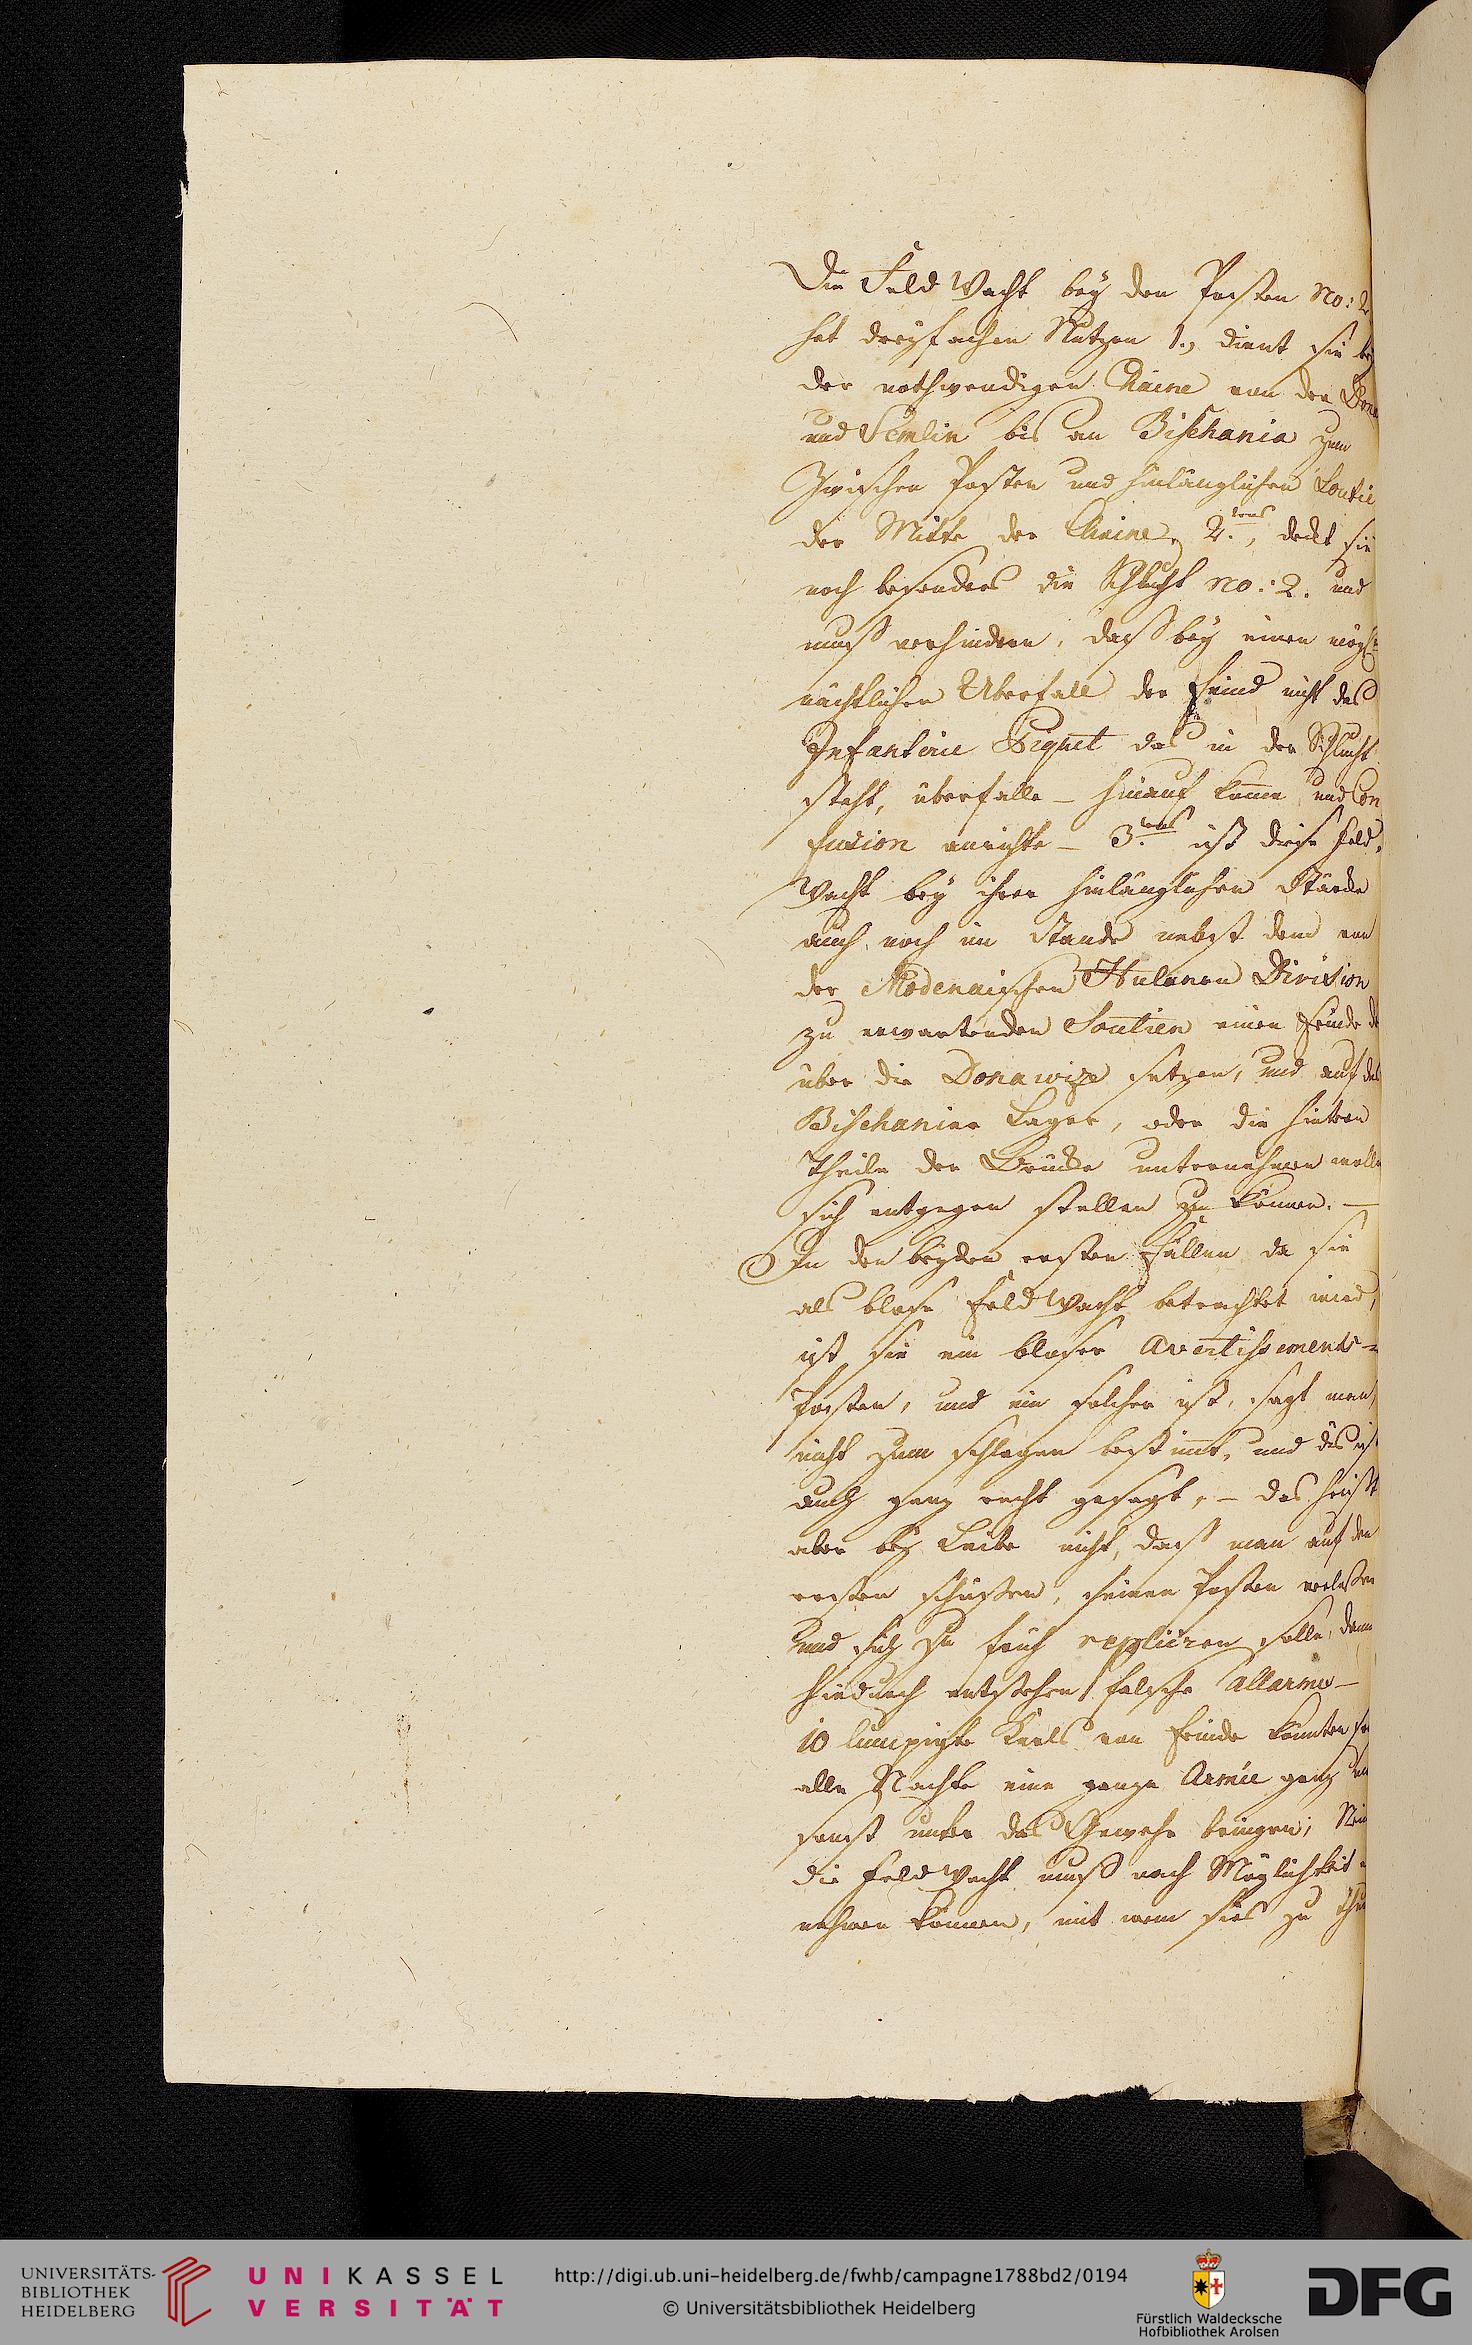 Die Feld Wacht bey den Posten No: 2
hat dreyfachen Nutzen 1., dient sie bey
der nothwendigen Chaine von der
und Semlin bis an Bischania zum
Zwischen Posten und hinlänglichen Soutie
der Mitte der Chaine, 2.tens, deckt sie
noch besonders die Schlucht No: 2. und
muß verhindern, daß bey einen
nächtlichen Überfall der Feind nicht das
Infanterie Piquet das in der Schlucht
steht, überfalle – hinauf kome und Con
fusion anrichte – 3.tens ist diese Feld
Wacht bey ihrer hinlänglichen Stärke
auch noch im Stande nebst dem von
der Modenaischen Hulanen Division
zu erwartenden Soutien einen Feinde
über die Donawize setzen, und auf das
Bischanier Lager, oder die hintern
Theile der Brücke unternehmen wolle
sich entgegen stellen zu können. –
In den beyden ersten Fällen da sie
als blose Feld Wacht betrachtet wird,
ist sie ein bloser Avertissements-
Posten, und ein solcher ist, sagt man,
nicht zum schlagen bestimt, und das ist
auch ganz recht gesagt, – das heißt
aber bey Leibe nicht, daß man auf den
ersten schüssen, seinen Posten verlassen
und sich zu früh repliiren solle, dann
hiedurch entstehen falsche Allarme –
10 lumpigte Kerls von Feinde könnten
alle Nachte eine ganze Armée ganz
sanst unter das Gewehr bringen;
die Feld Wacht muß nach Möglichkeit
nehmen können, mit wem sies zu
UNIVERSITÄTS-
BIBLIOTHEK
HEIDELBERG
UNIKASSEL
VERSITÄT
http://digi.ub.uni-heidelberg.de/fwhb/campagne1788bd2/0194
© Universitätsbibliothek Heidelberg
Fürstlich Waldecksche
Hofbibliothek Arolsen
DFG